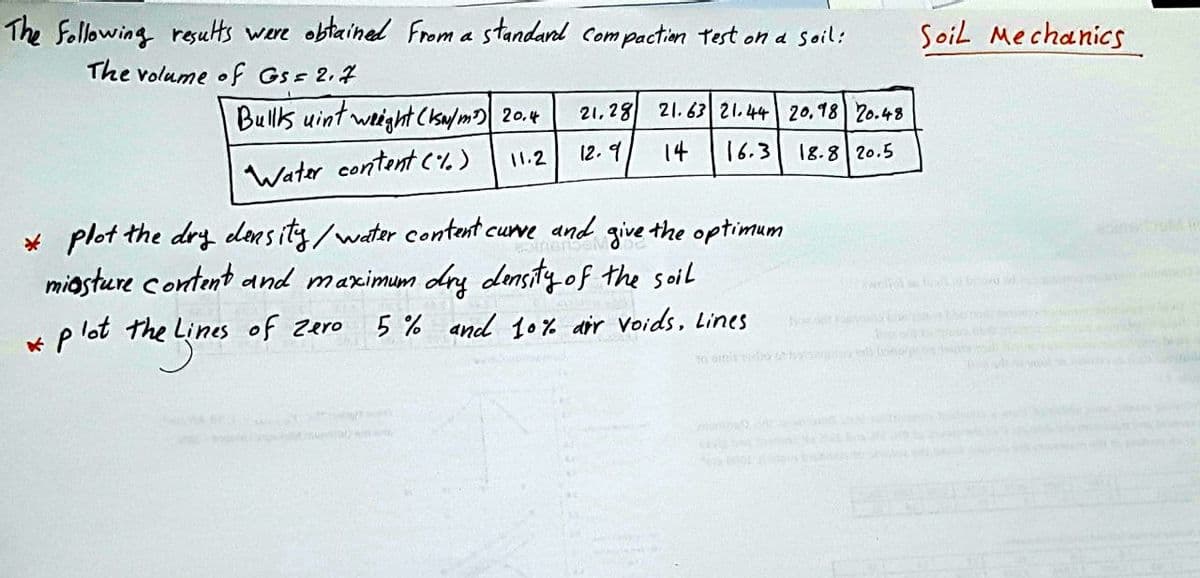 The Following results were obtained From a standard Compaction test on a Soil:
Soil Mechanics
The volume of Gs = 2.7
Bulks uint weight (kN/m³) 20.4 21.28 21.63 21.44 20.98 20.48
Water content (%) 11.2 12.9 14 16.3 18.8 20.5
* plot the dry density / water content curve and give the optimum
miosture content and maximum dry density of the soil
* plot the Lines of Zero 5 % and 10% air Voids, Lines